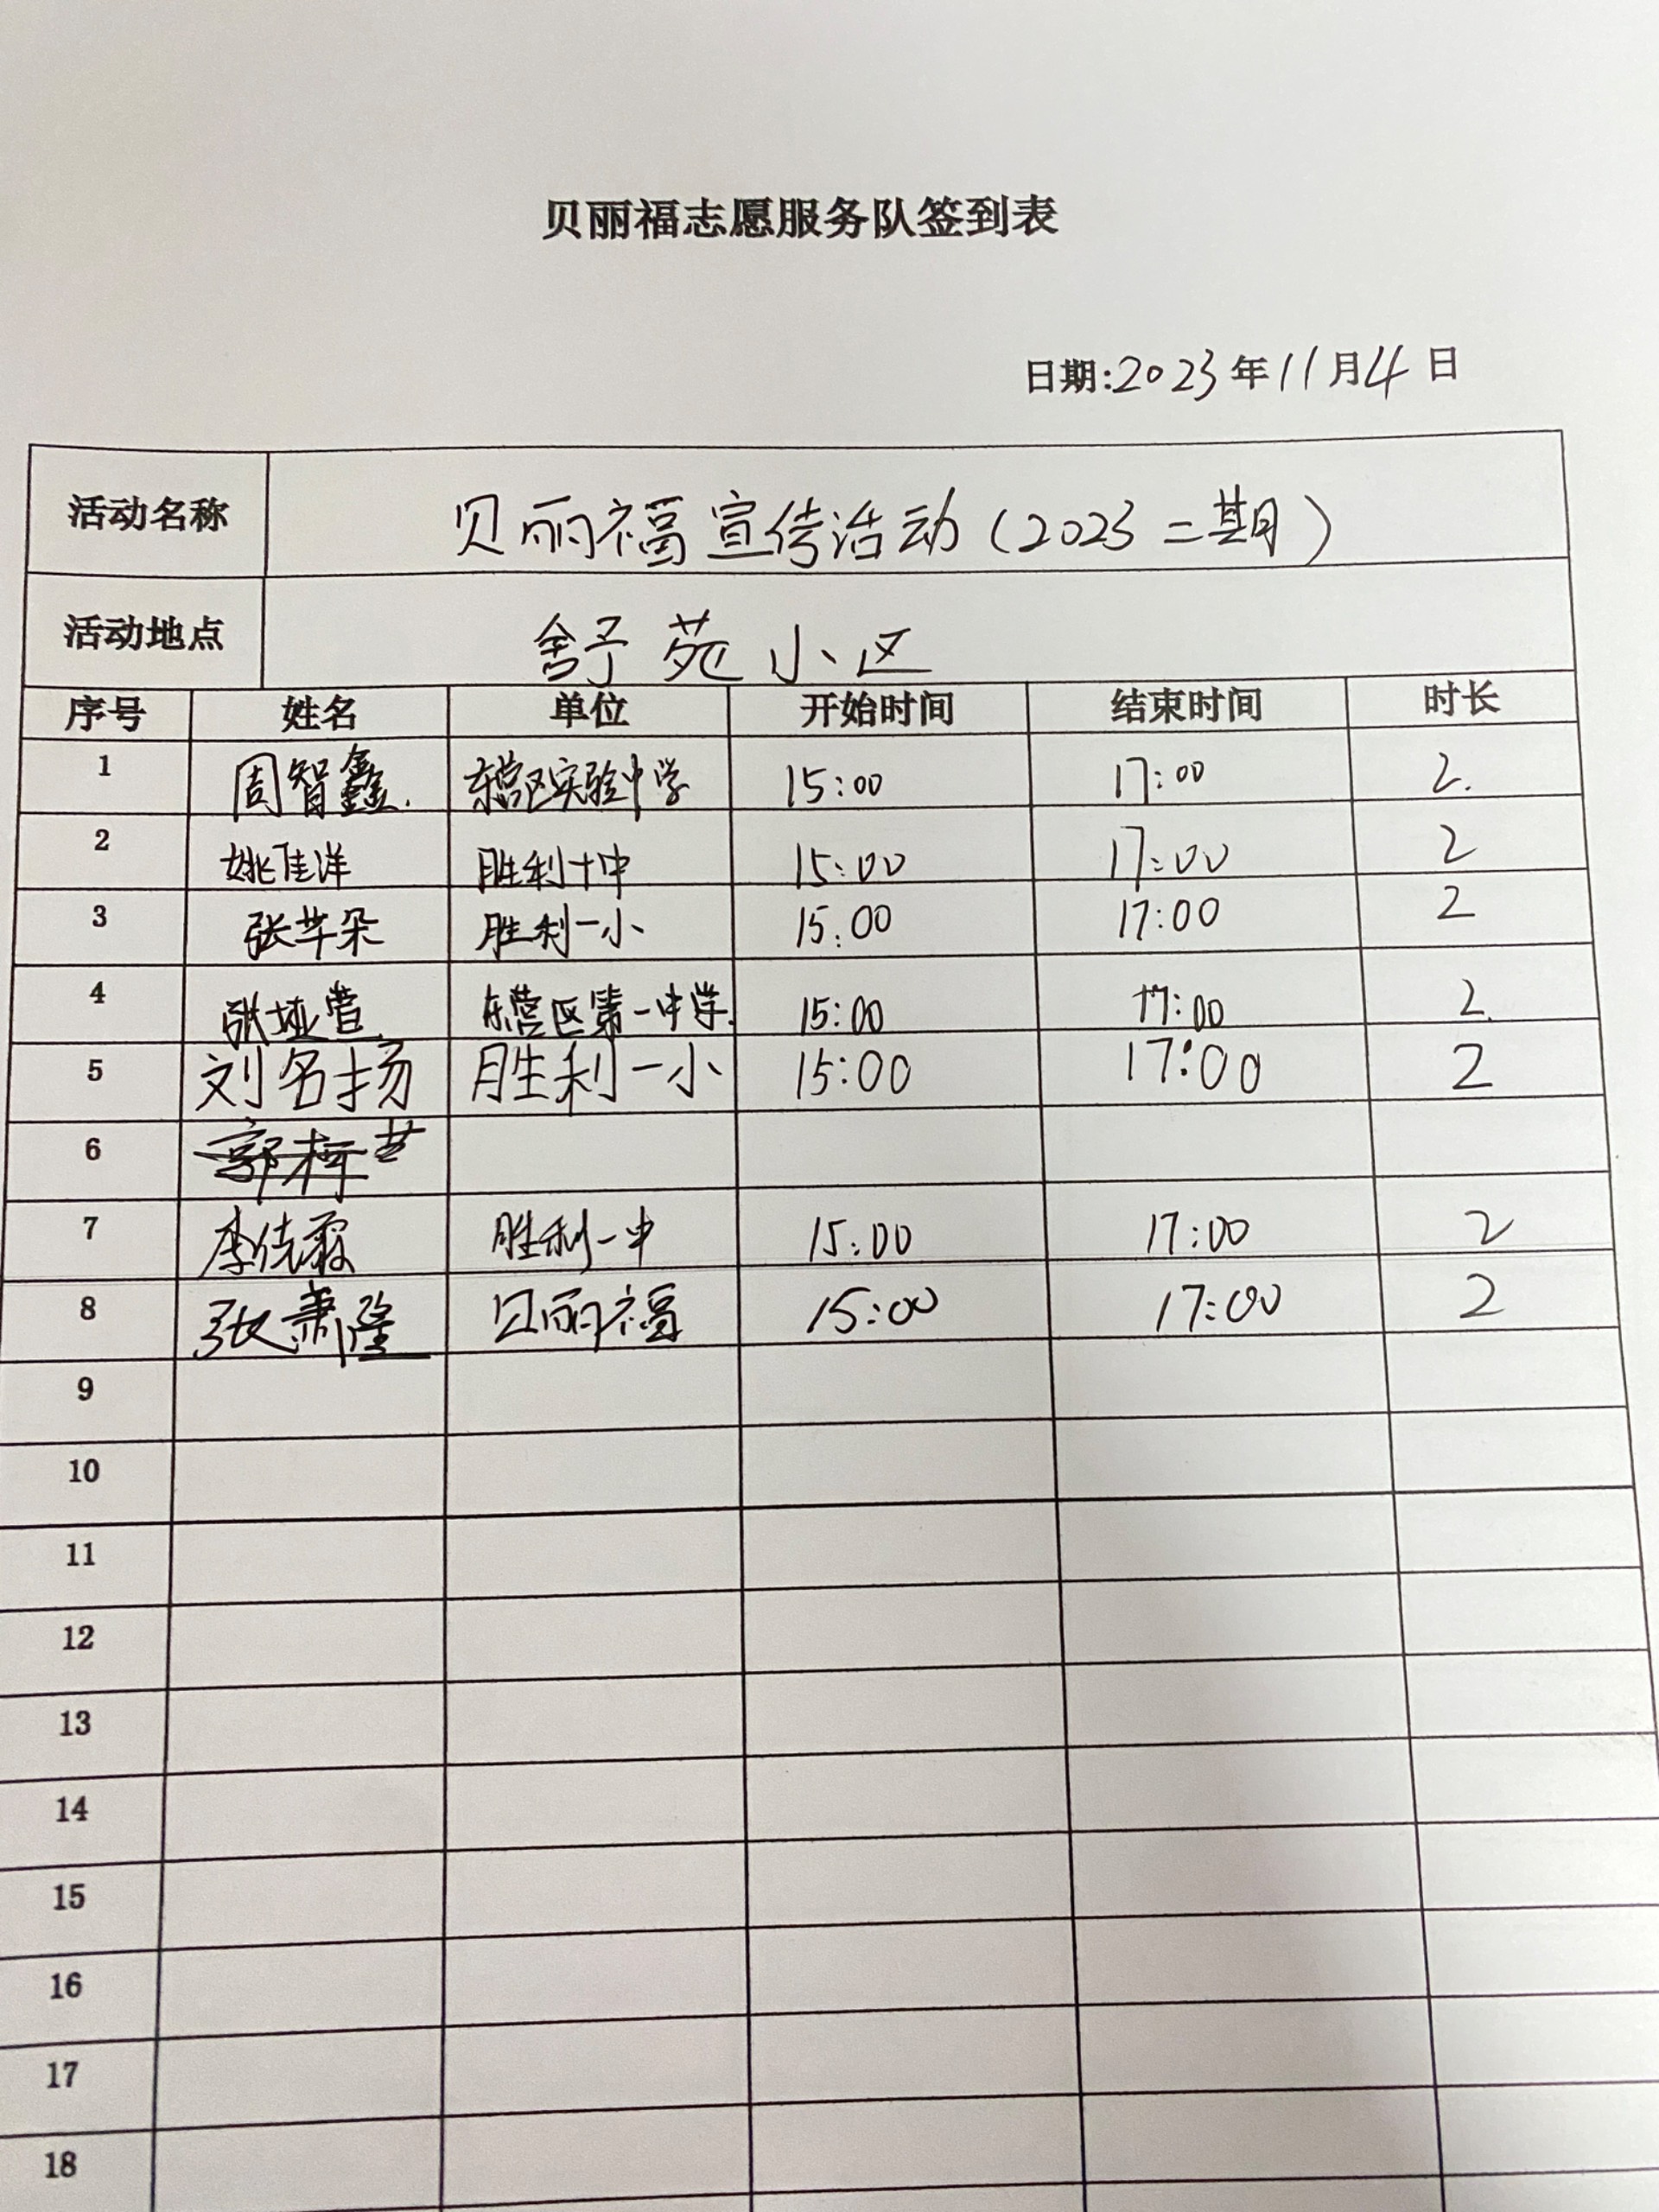 贝丽福志愿服务队签到表
日期:2023年11月4日
活动名称 贝丽福宣传活动(2023二期)
活动地点 舒苑小区
序号 姓名 单位 开始时间 结束时间 时长
1 周智鑫. 东营区实验中学 15:00 17:00 2.
2 姚佳洋 胜利十中 15:00 17:00 2
3 张芊朵 胜利一小 15:00 17:00 2
4 张垭萱 东营区第一中学. 15:00 17:00 2.
5 刘名扬 胜利一小 15:00 17:00 2
6
7 李 胜利一中 15:00 17:00 2
8 张萧隆 贝丽福 15:00 17:00 2
9
10
11
12
13
14
15
16
17
18